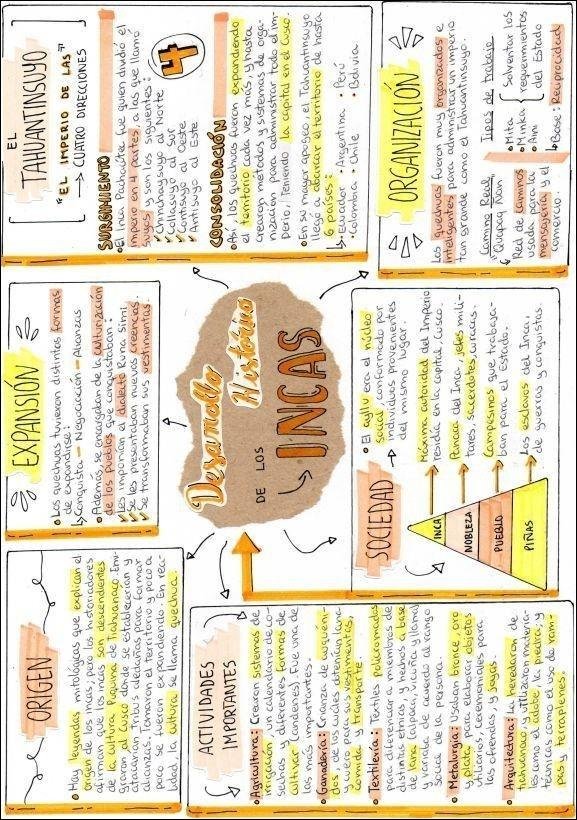 Desarrollo
Histórico
DE LOS
INCAS
ORIGEN
• Hay leyendas mitológicas que explican el
origen de los incas, pero los historiadores
afirman que los incas son descendientes
de la cultura Puquina de Tiahuanaco. Emi-
graron al Cusco donde se establecerían y
atacarían tribus aledañas para formar
alianzas. Tomaron el territorio y poco a
poco se fueron expandiendo. En rea-
lidad, la cultura se llama quechua.
EXPANSIÓN
• Los quechuas tuvieron distintas formas
de expandirse:
Conquista – Negociación – Alianzas
• Además, se encargaban de la culturización
de los pueblos que conquistaban:
✓ Les imponían el dialecto Runa Simi.
✓ Se les presentaban nuevas creencias.
✓ Se transformaban sus vestimentas.
EL
TAHUANTINSUYO
"EL IMPERIO DE LAS
CUATRO DIRECCIONES"
SURGIMIENTO
4
• El Inca Pachacútec fue quien dividió el
imperio en 4 partes, a las que llamó
suyos y son los siguientes:
✓ Chinchaysuyo al Norte
✓ Collasuyo al Sur
✓ Contisuyo al Oeste
✓ Antisuyo al Este
CONSOLIDACIÓN
• Así, los quechuas fueron expandiendo
el territorio cada vez más y hasta
crearon métodos y sistemas de orga-
nización para administrar todo el im-
perio, teniendo la capital en el Cusco.
• En su mayor apogeo, el Tahuantinsuyo
llegó a abarcar el territorio de hasta
6 países:
• Ecuador • Argentina • Perú
• Colombia • Chile • Bolivia
ACTIVIDADES
IMPORTANTES
• Agricultura: Crearon sistemas de
irrigación, un calendario de co-
sechas y diferentes formas de
cultivar (andenes). Fue una de
las más importantes.
• Ganadería: Crianza de auquéni-
dos, de los cuales obtenían lana
y cuero para sus vestimentas,
comida y transporte.
• Textilería: Textiles policromados
para diferenciar a miembros de
distintas etnias, y hechos a base
de lana (alpaca, vicuña y llama)
y variaba de acuerdo al rango
social de la persona.
• Metalurgia: Usaban bronce, oro
y plata para elaborar objetos
utilitarios, ceremoniales para
las ofrendas, y joyas.
• Arquitectura: La heredaron de
Tiahuanaco, y utilizaron materia-
les como el adobe, la piedra; y
técnicas como el uso de ram-
pas y terraplenes.
SOCIEDAD
• El ayllu era el núcleo
social conformado por
individuos provenientes
del mismo lugar.
INCA
Máxima autoridad del Imperio
residía en la capital, Cusco.
NOBLEZA
Panaca del Inca, jefes mili-
tares, sacerdotes, curacas.
PUEBLO
Campesinos que trabaja-
ban para el Estado.
PIÑAS
Los esclavos del Inca,
de guerras y conquistas.
ORGANIZACIÓN
Los quechuas fueron muy organizados e
inteligentes para administrar un imperio
tan grande como el Tahuantinsuyo.
Camino Real
Qhapaq Ñan
Red de caminos
usada para la
mensajería y el
comercio.
Tipos de Trabajo
• Mita
• Minka
• Aini
Solventar los
requerimientos
del Estado
Base: Reciprocidad